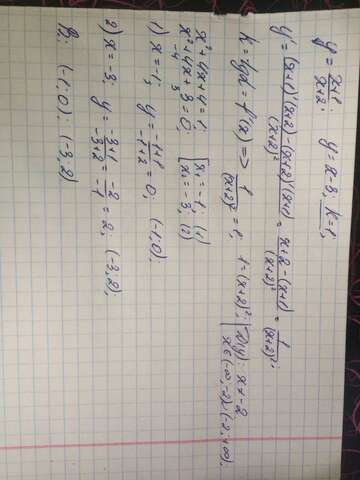 y = (x+1)/(x+2); y = x - 3; k = 1;
y' = ((x+1)'(x+2) - (x+2)'(x+1))/(x+2)² = (x+2 - (x+1))/(x+2)² = 1/(x+2)²;
k = tgα = f'(x) => 1/(x+2)² = 1; 1 = (x+2)²; | D(y): x ≠ -2
x ∈ (-∞, -2) ∪ (-2, +∞).
x² + 4x + 4 = 1;
-4 3
x² + 4x + 3 = 0; [x₁ = -1; (1)
x₂ = -3; (2)
1) x = -1; y = (-1+1)/(-1+2) = 0; (-1; 0).
2) x = -3; y = (-3+1)/(-3+2) = -2/-1 = 2; (-3; 2);
(-1; 0); (-3; 2)